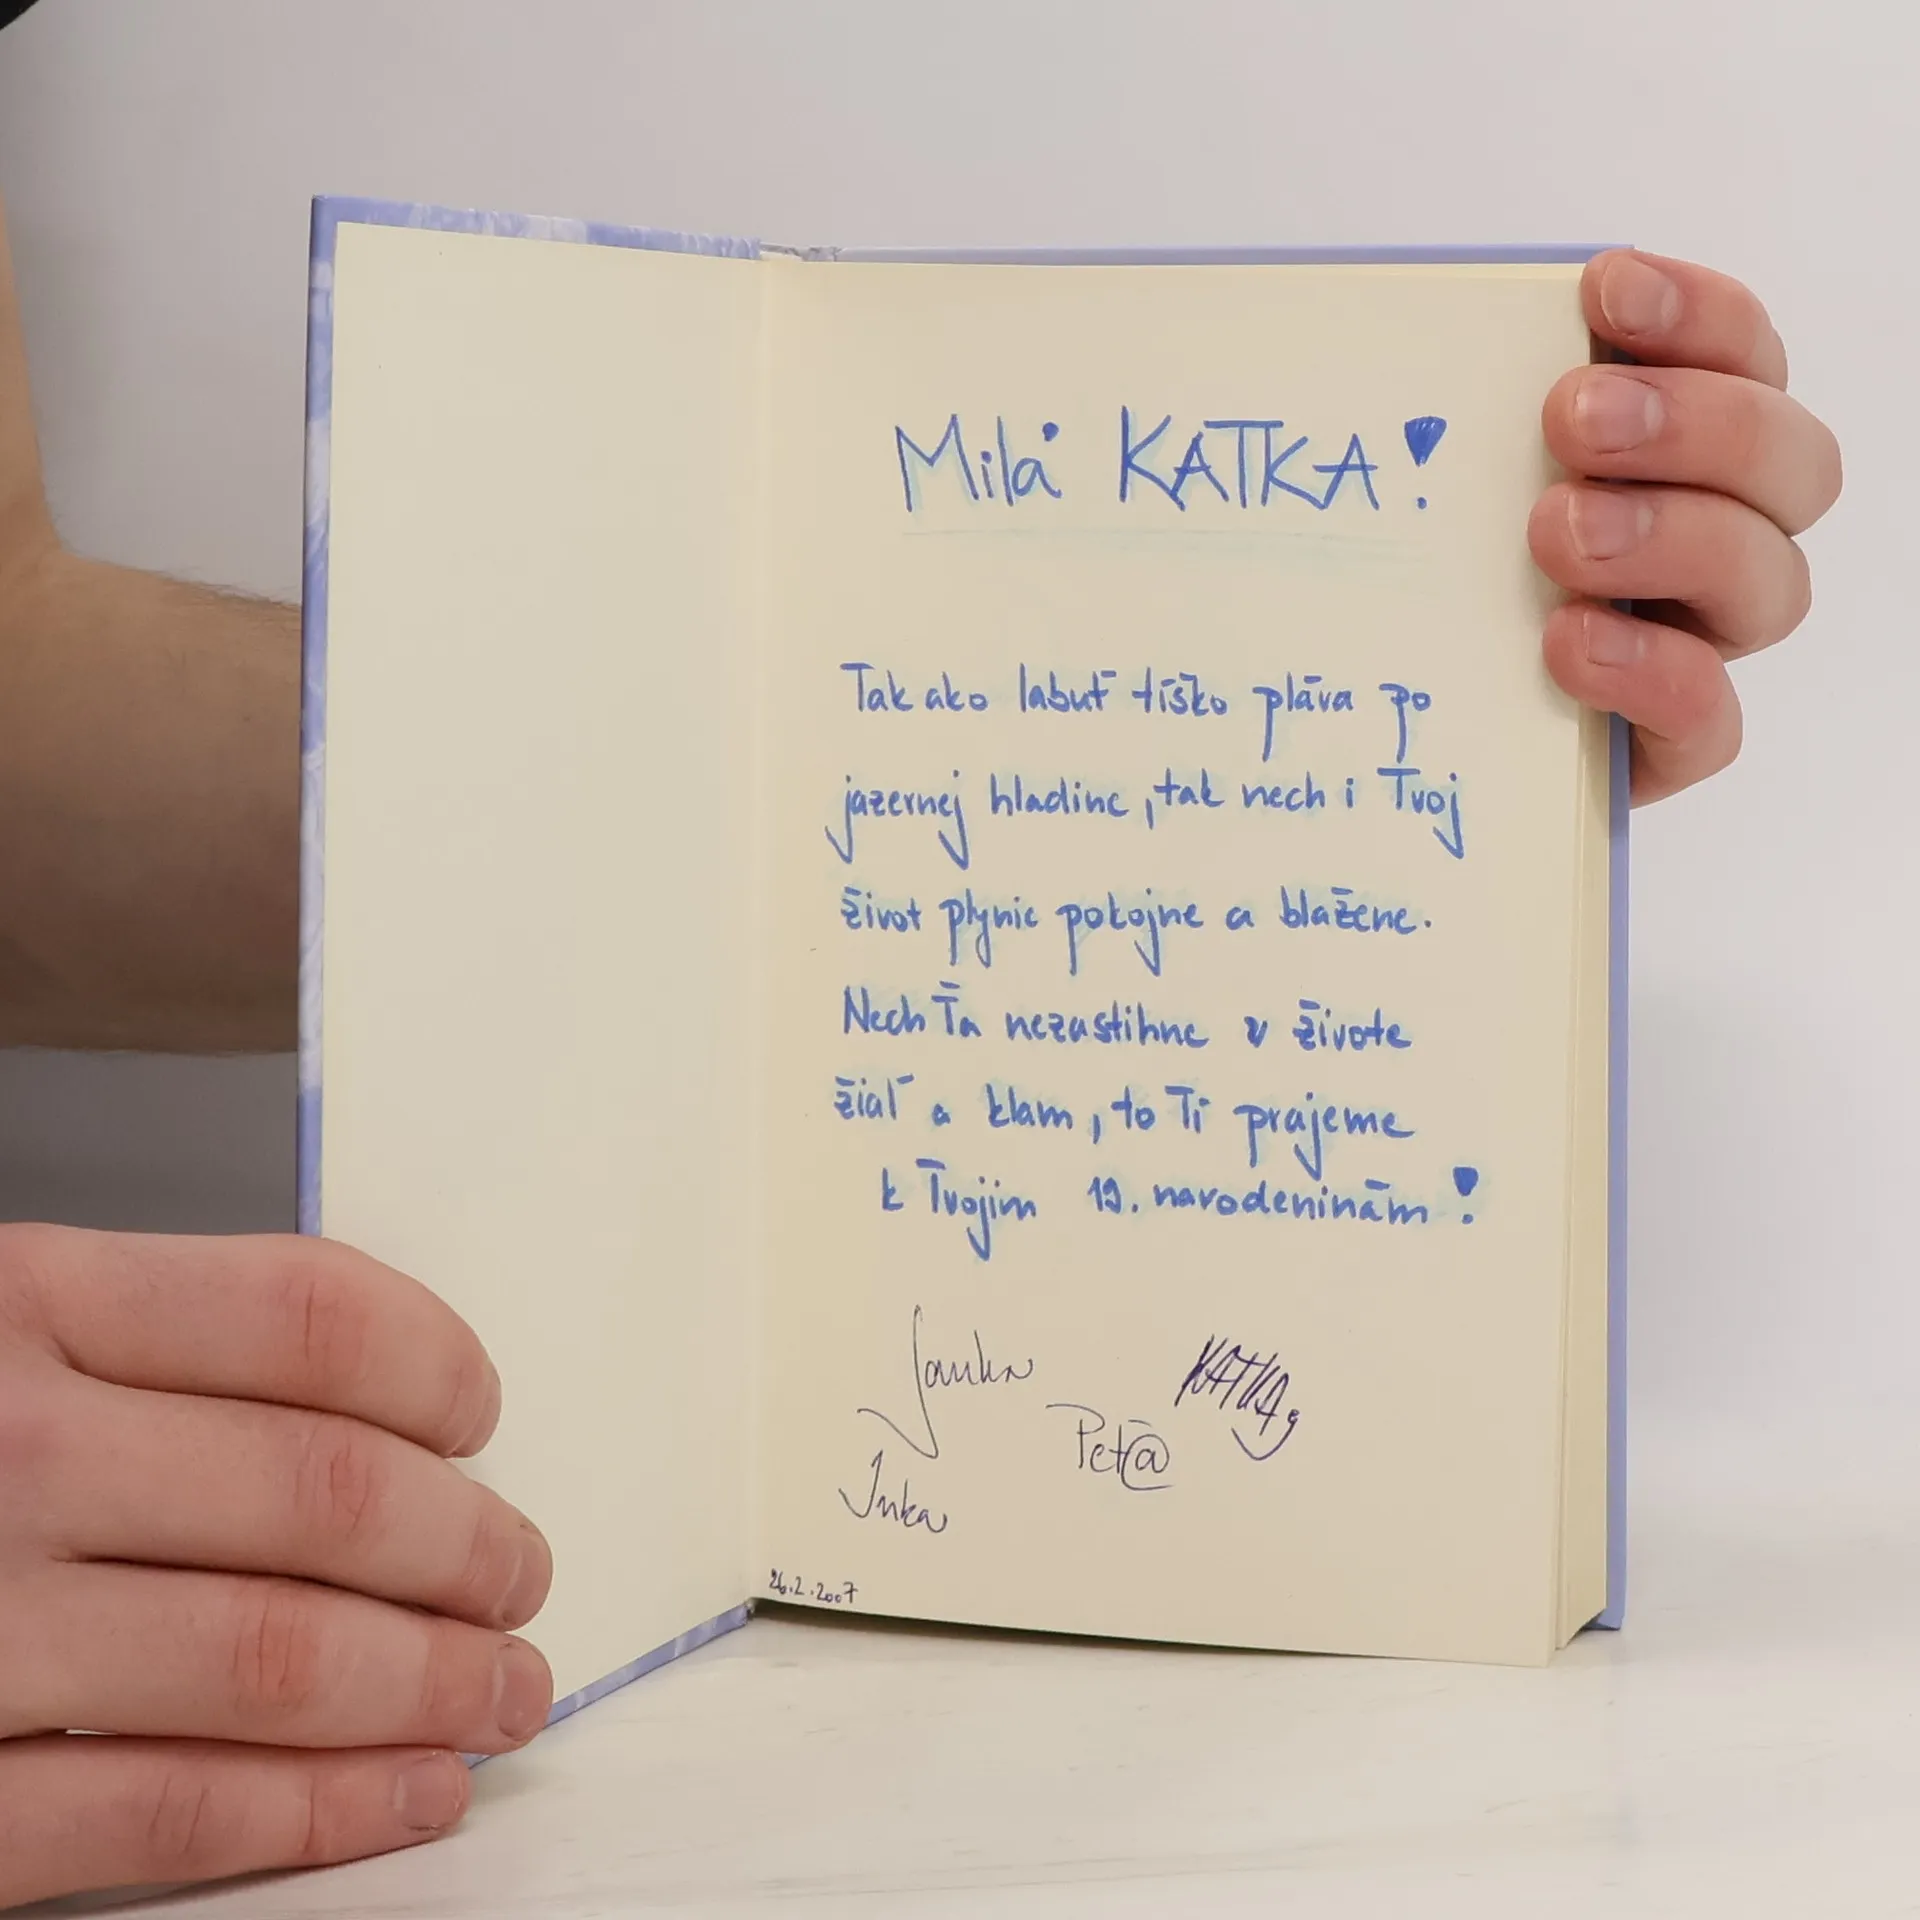 Milá KATKA!
Tak ako labuť tíško pláva po
jazernej hladine, tak nech i Tvoj
život plynie pokojne a blažene.
Nech Ťa nezastihne v živote
žiaľ a klam, to Ti prajeme
k Tvojim 19. narodeninám!
Janka
KATKA
Pet@
Inka
26.2.2007